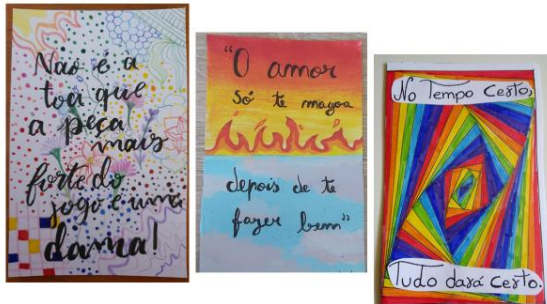 Não é a
toa que
a peça
mais
forte do
jogo é uma
dama!
"O amor
só te magoa
depois de te
fazer bem"
No Tempo Certo,
Tudo dará certo.